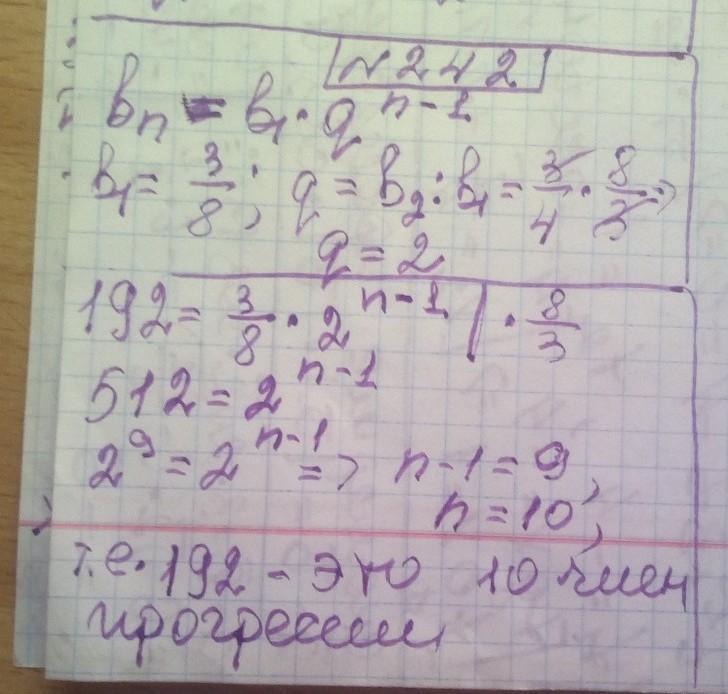 №242
bn = b1 · q^(n-1)
b1 = 3/8; q = b2 : b1 = 3/4 · 8/3 =>
q = 2
192 = 3/8 · 2^(n-1) | · 8/3
512 = 2^(n-1)
2^9 = 2^(n-1) => n-1 = 9,
n = 10,
т.е. 192 - это 10 член
прогрессии